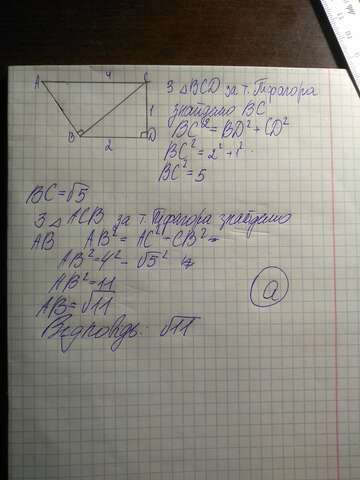 A 4 C
З △ BCD за т. Піфагора
знайдемо BC
1
BC² = BD² + CD²
B D
2
BC² = 2² + 1²
BC² = 5
BC = √5
З △ ACB за т. Піфагора знайдемо
AB AB² = AC² - CB²
AB² = 4² - √5²
AB² = 11
а
AB = √11
Відповідь: √11